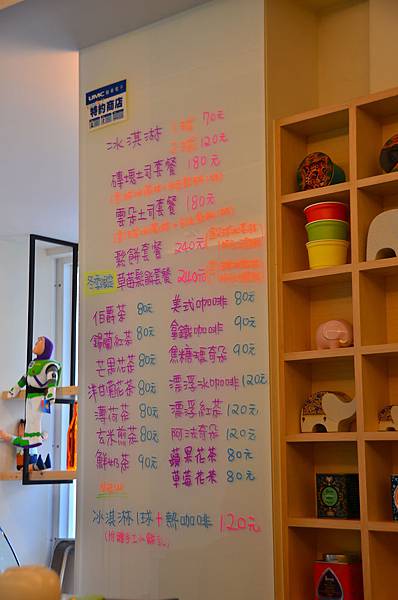 UMC
特約商店
冰淇淋 1球 70元
2球 120元
磚塊土司套餐 180元
雲朵土司套餐 180元
鬆餅套餐 240元
草莓鬆餅套餐 240元
伯爵茶 80元 美式咖啡 80元
錫蘭紅茶 80元 拿鐵咖啡 90元
芒果花茶 80元 焦糖瑪奇朵 90元
洋甘菊花茶 80元 漂浮冰咖啡 120元
薄荷茶 80元 漂浮紅茶 120元
玄米煎茶 80元 阿法奇朵 120元
鮮奶茶 90元 蘋果花茶 80元
草莓花茶 80元
冰淇淋1球+熱咖啡 120元
(附贈手工小餅乾)